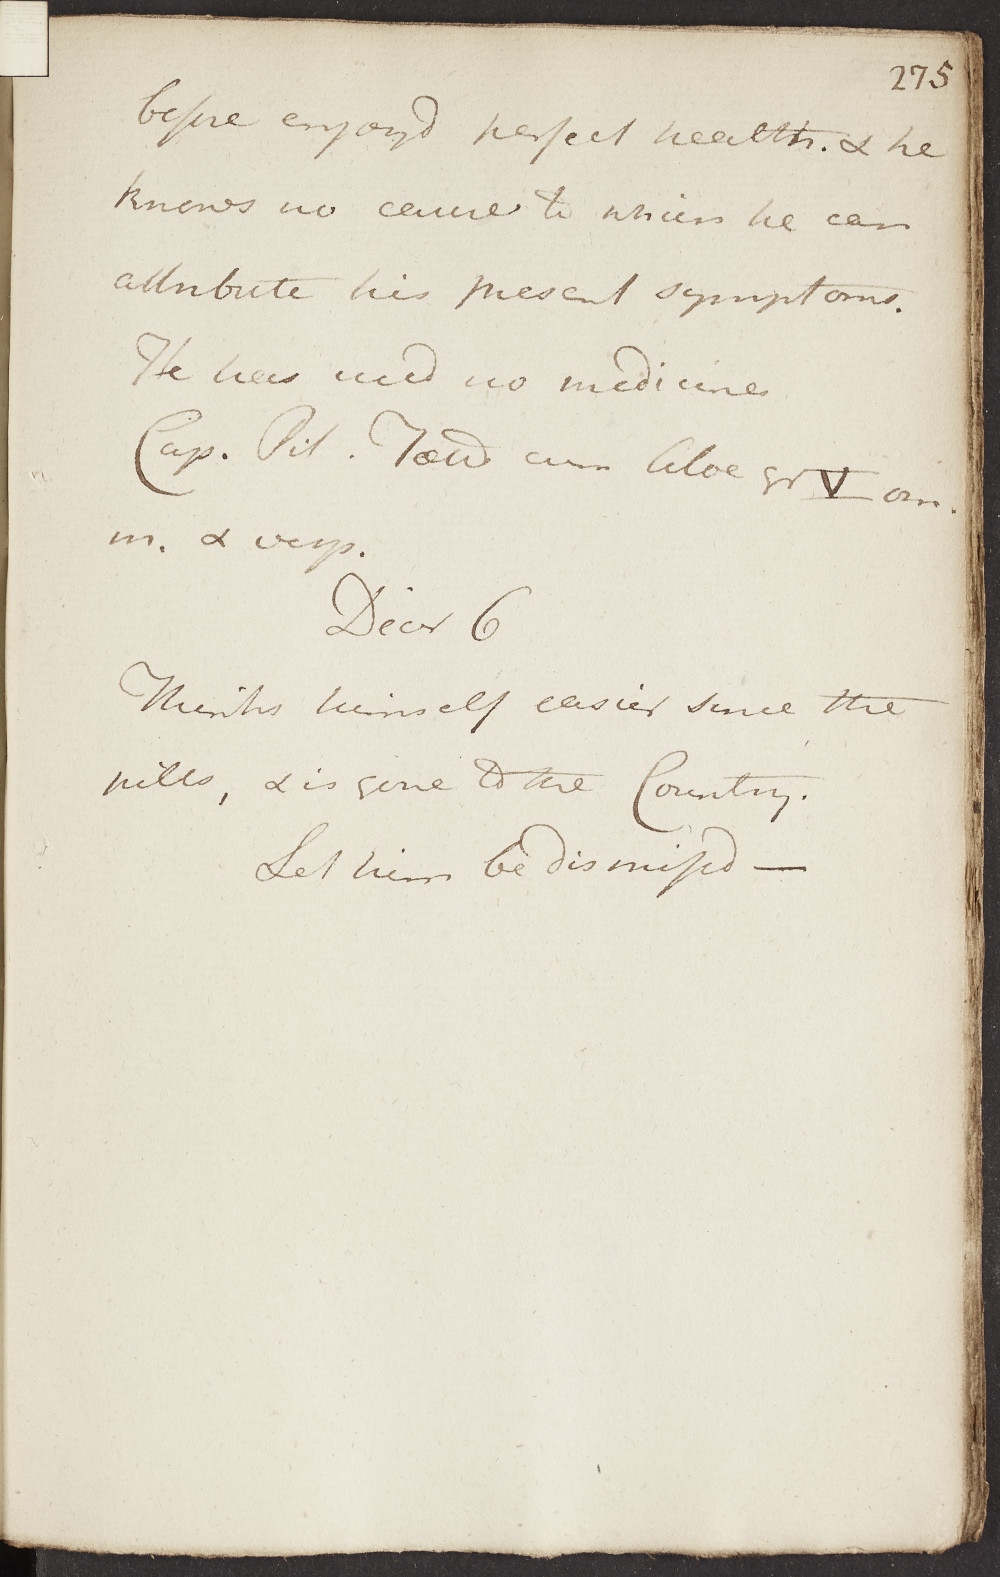 275
before enjoyd perfect health. & he
knows no cause to which he can
attribute his present symptoms.
He has used no medicines
Cap. Pil. Foetid cum Aloe gr V om.
m. & vesp.
Decr 6
Thinks himself easier since the
pills, & is gone to the Country.
Let him be dismissd —